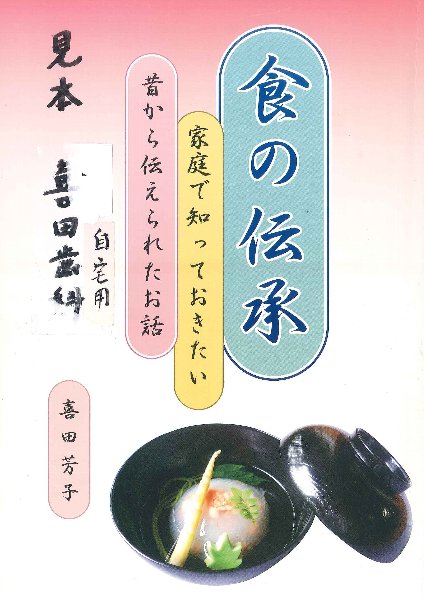 食の伝承
家庭で知っておきたい
昔から伝えられたお話
見本
喜田歯科
自宅用
喜田芳子